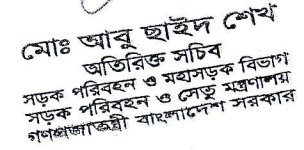 মোঃ আবু ছাইদ শেখ
অতিরিক্ত সচিব
সড়ক পরিবহন ও মহাসড়ক বিভাগ
সড়ক পরিবহন ও সেতু মন্ত্রণালয়
গণপ্রজাতন্ত্রী বাংলাদেশ সরকার